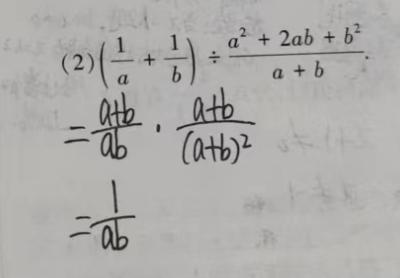 (2)(1/a + 1/b) ÷ (a² + 2ab + b²)/(a + b).
= (a+b)/(ab) · (a+b)/((a+b)²)
= 1/(ab)